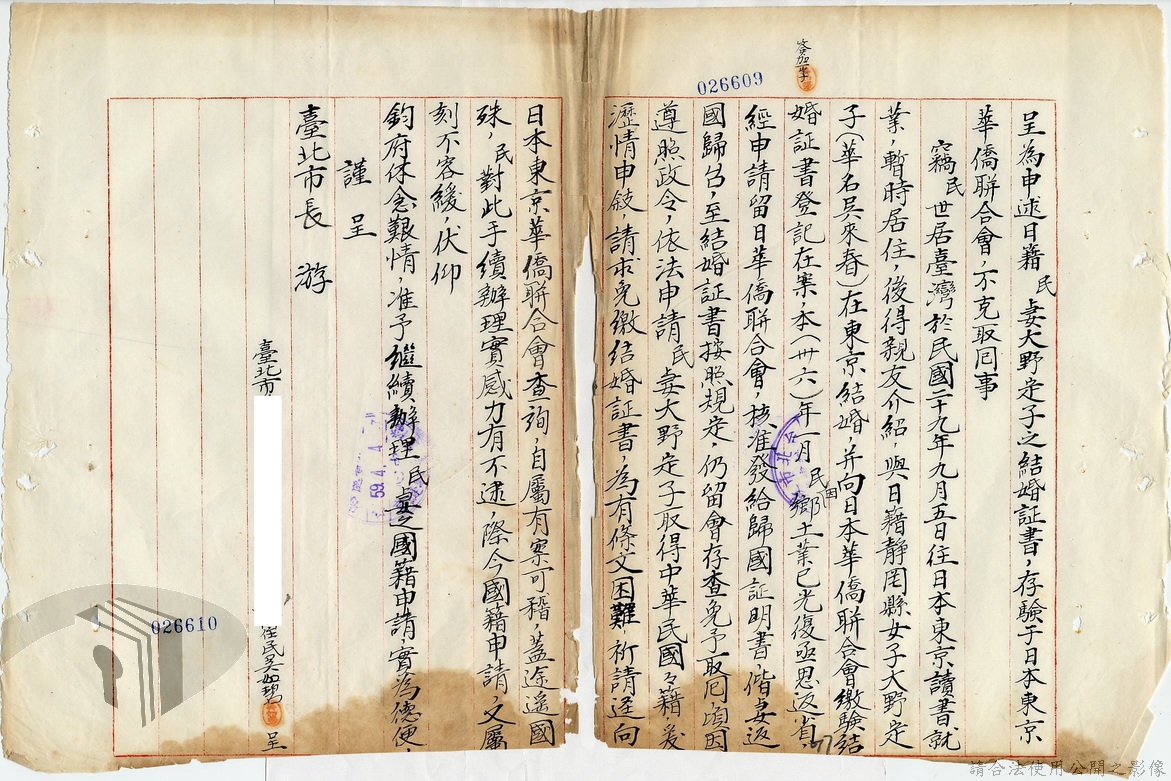 026609
呈為申述日籍民妻大野定子之結婚証書，存驗于日本東京
華僑聯合會，不克取囘事
竊民世居臺灣於民國二十九年九月五日往日本東京讀書就
業，暫時居住，後得親友介紹，與日籍静岡縣女子大野定
子（華名吳來春）在東京結婚，并向日本華僑聯合會繳驗結
婚証書登記在案，本（卅六）年一月民因鄉土業已光復亟思返省，
經申請留日華僑聯合會，核准發給歸國証明書，偕妻返
國歸台，至結婚証書按照規定，仍留會存查免予取囘，頃因
遵照政令，依法申請民妻大野定子取得中華民國々籍，爰
瀝情申敍，請求免繳結婚証書，為有條文困難，祈請逕向
日本東京華僑聯合會查詢，自屬有案可稽，蓋途遥國
殊，民對此手續辦理實感力有不逮，際今國籍申請，又屬
刻不容緩，伏仰
鈞府体念艱情，准予繼續辦理民妻之國籍申請，實為德便，
謹呈
臺北市長 游
臺北市
住民吳如碧 呈
026610
59.4.4
請合法使用公開之影像